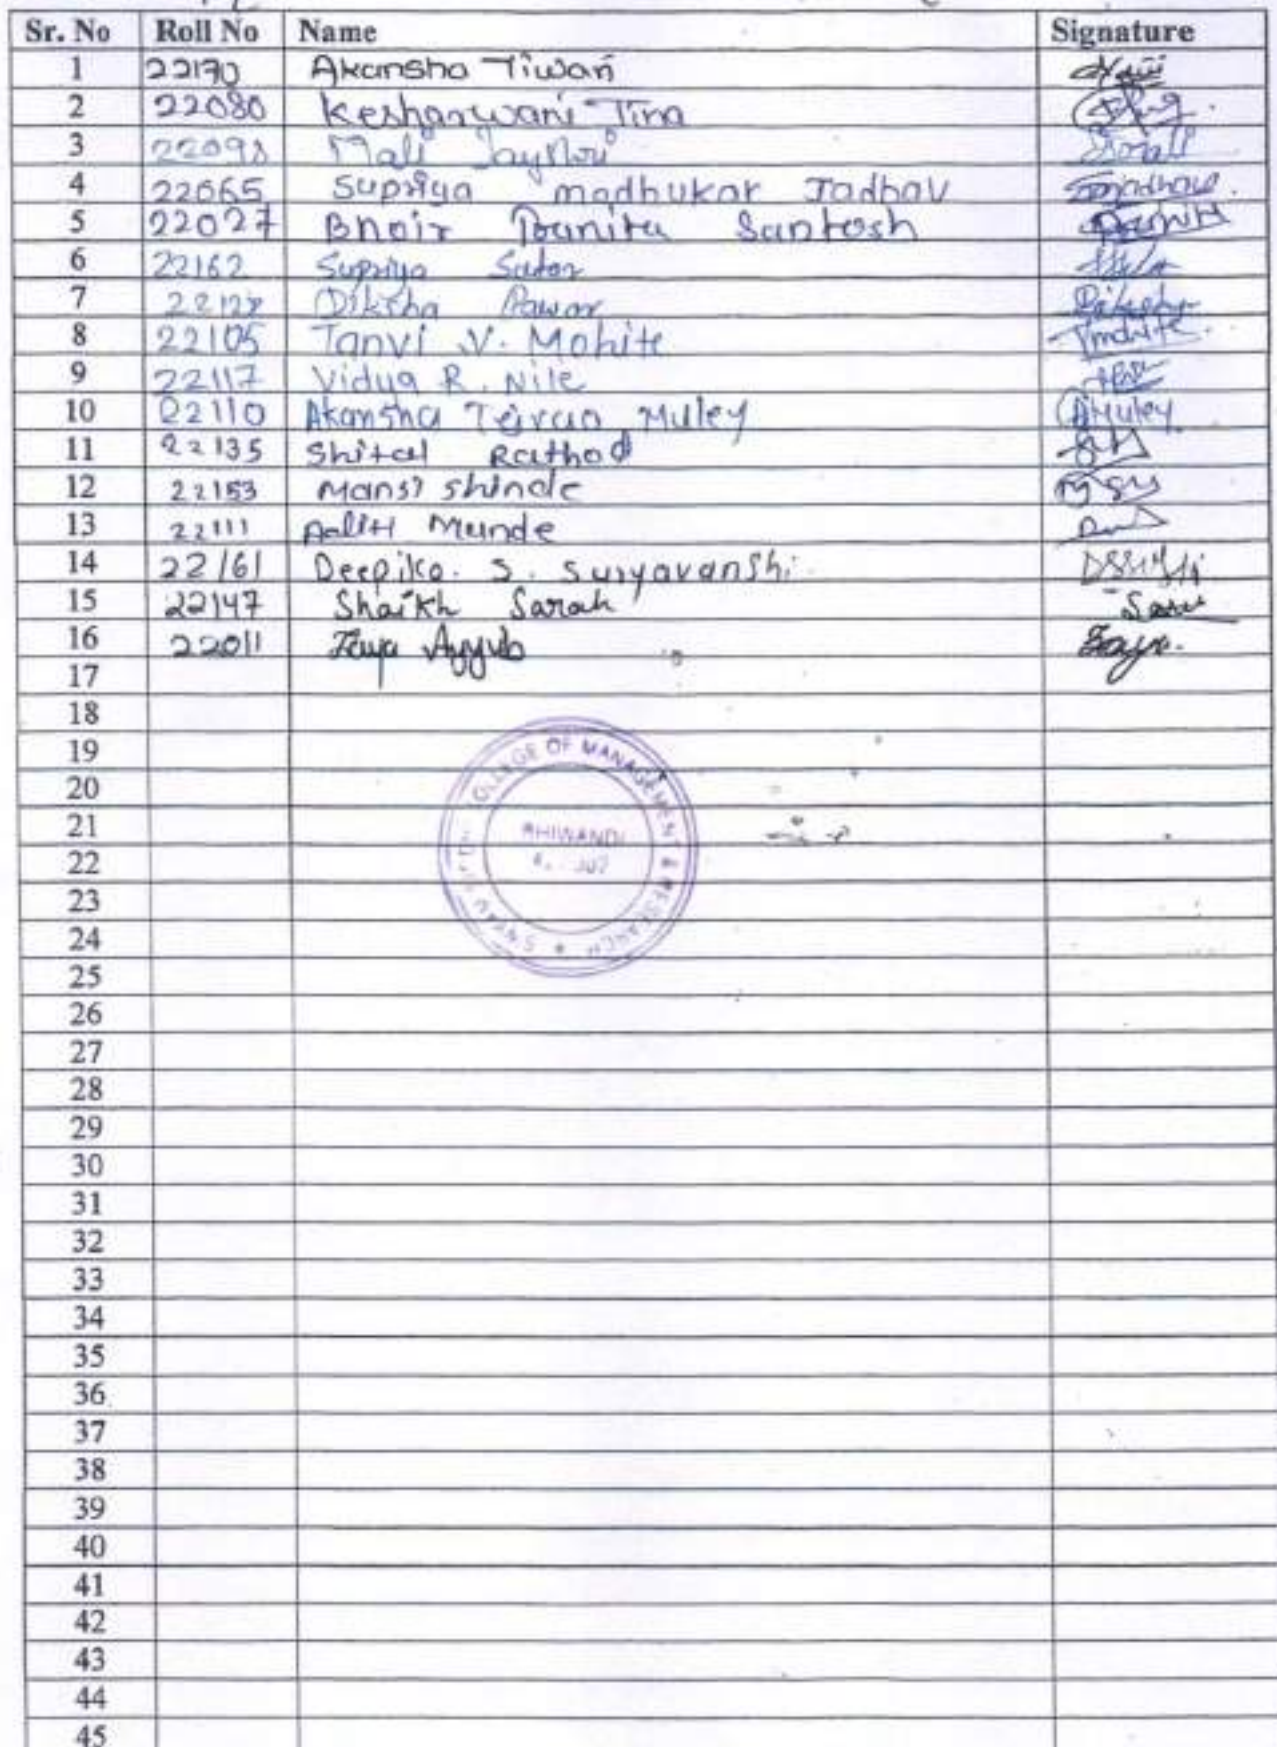 Sr. No Roll No Name Signature
1 22170 Akansha Tiwari
2 22080 Kesharwani Tina
3 22098 Mali Jayshri
4 22065 Supriya madhukar Jadhav
5 22027 Bhoir Santosh
6 22162 Supriya Sutar
7 Diksha Pawar
8 22105 Tanvi .V. Mohite Tmohite.
9 22117 Vidya R. Nile
10 22110 Akansha Muley AMuley
11 22135 Shital Rathod
12 22153 Mansi shinde
13 22111 Munde
14 22161 Deepika. S. Suryavanshi.
15 22147 Shaikh Sarah
16 22011 Ayyub
17
18
19
20
21
22
23
24
25
26
27
28
29
30
31
32
33
34
35
36
37
38
39
40
41
42
43
44
45
COLLEGE OF MANAGEMENT & RESEARCH
BHIWANDI